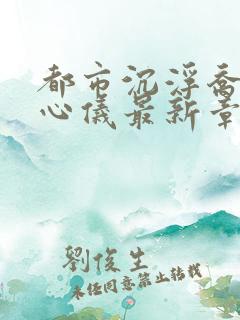 都市沉浮乔
心儀最新章
劉俊生
未经同意禁止转载